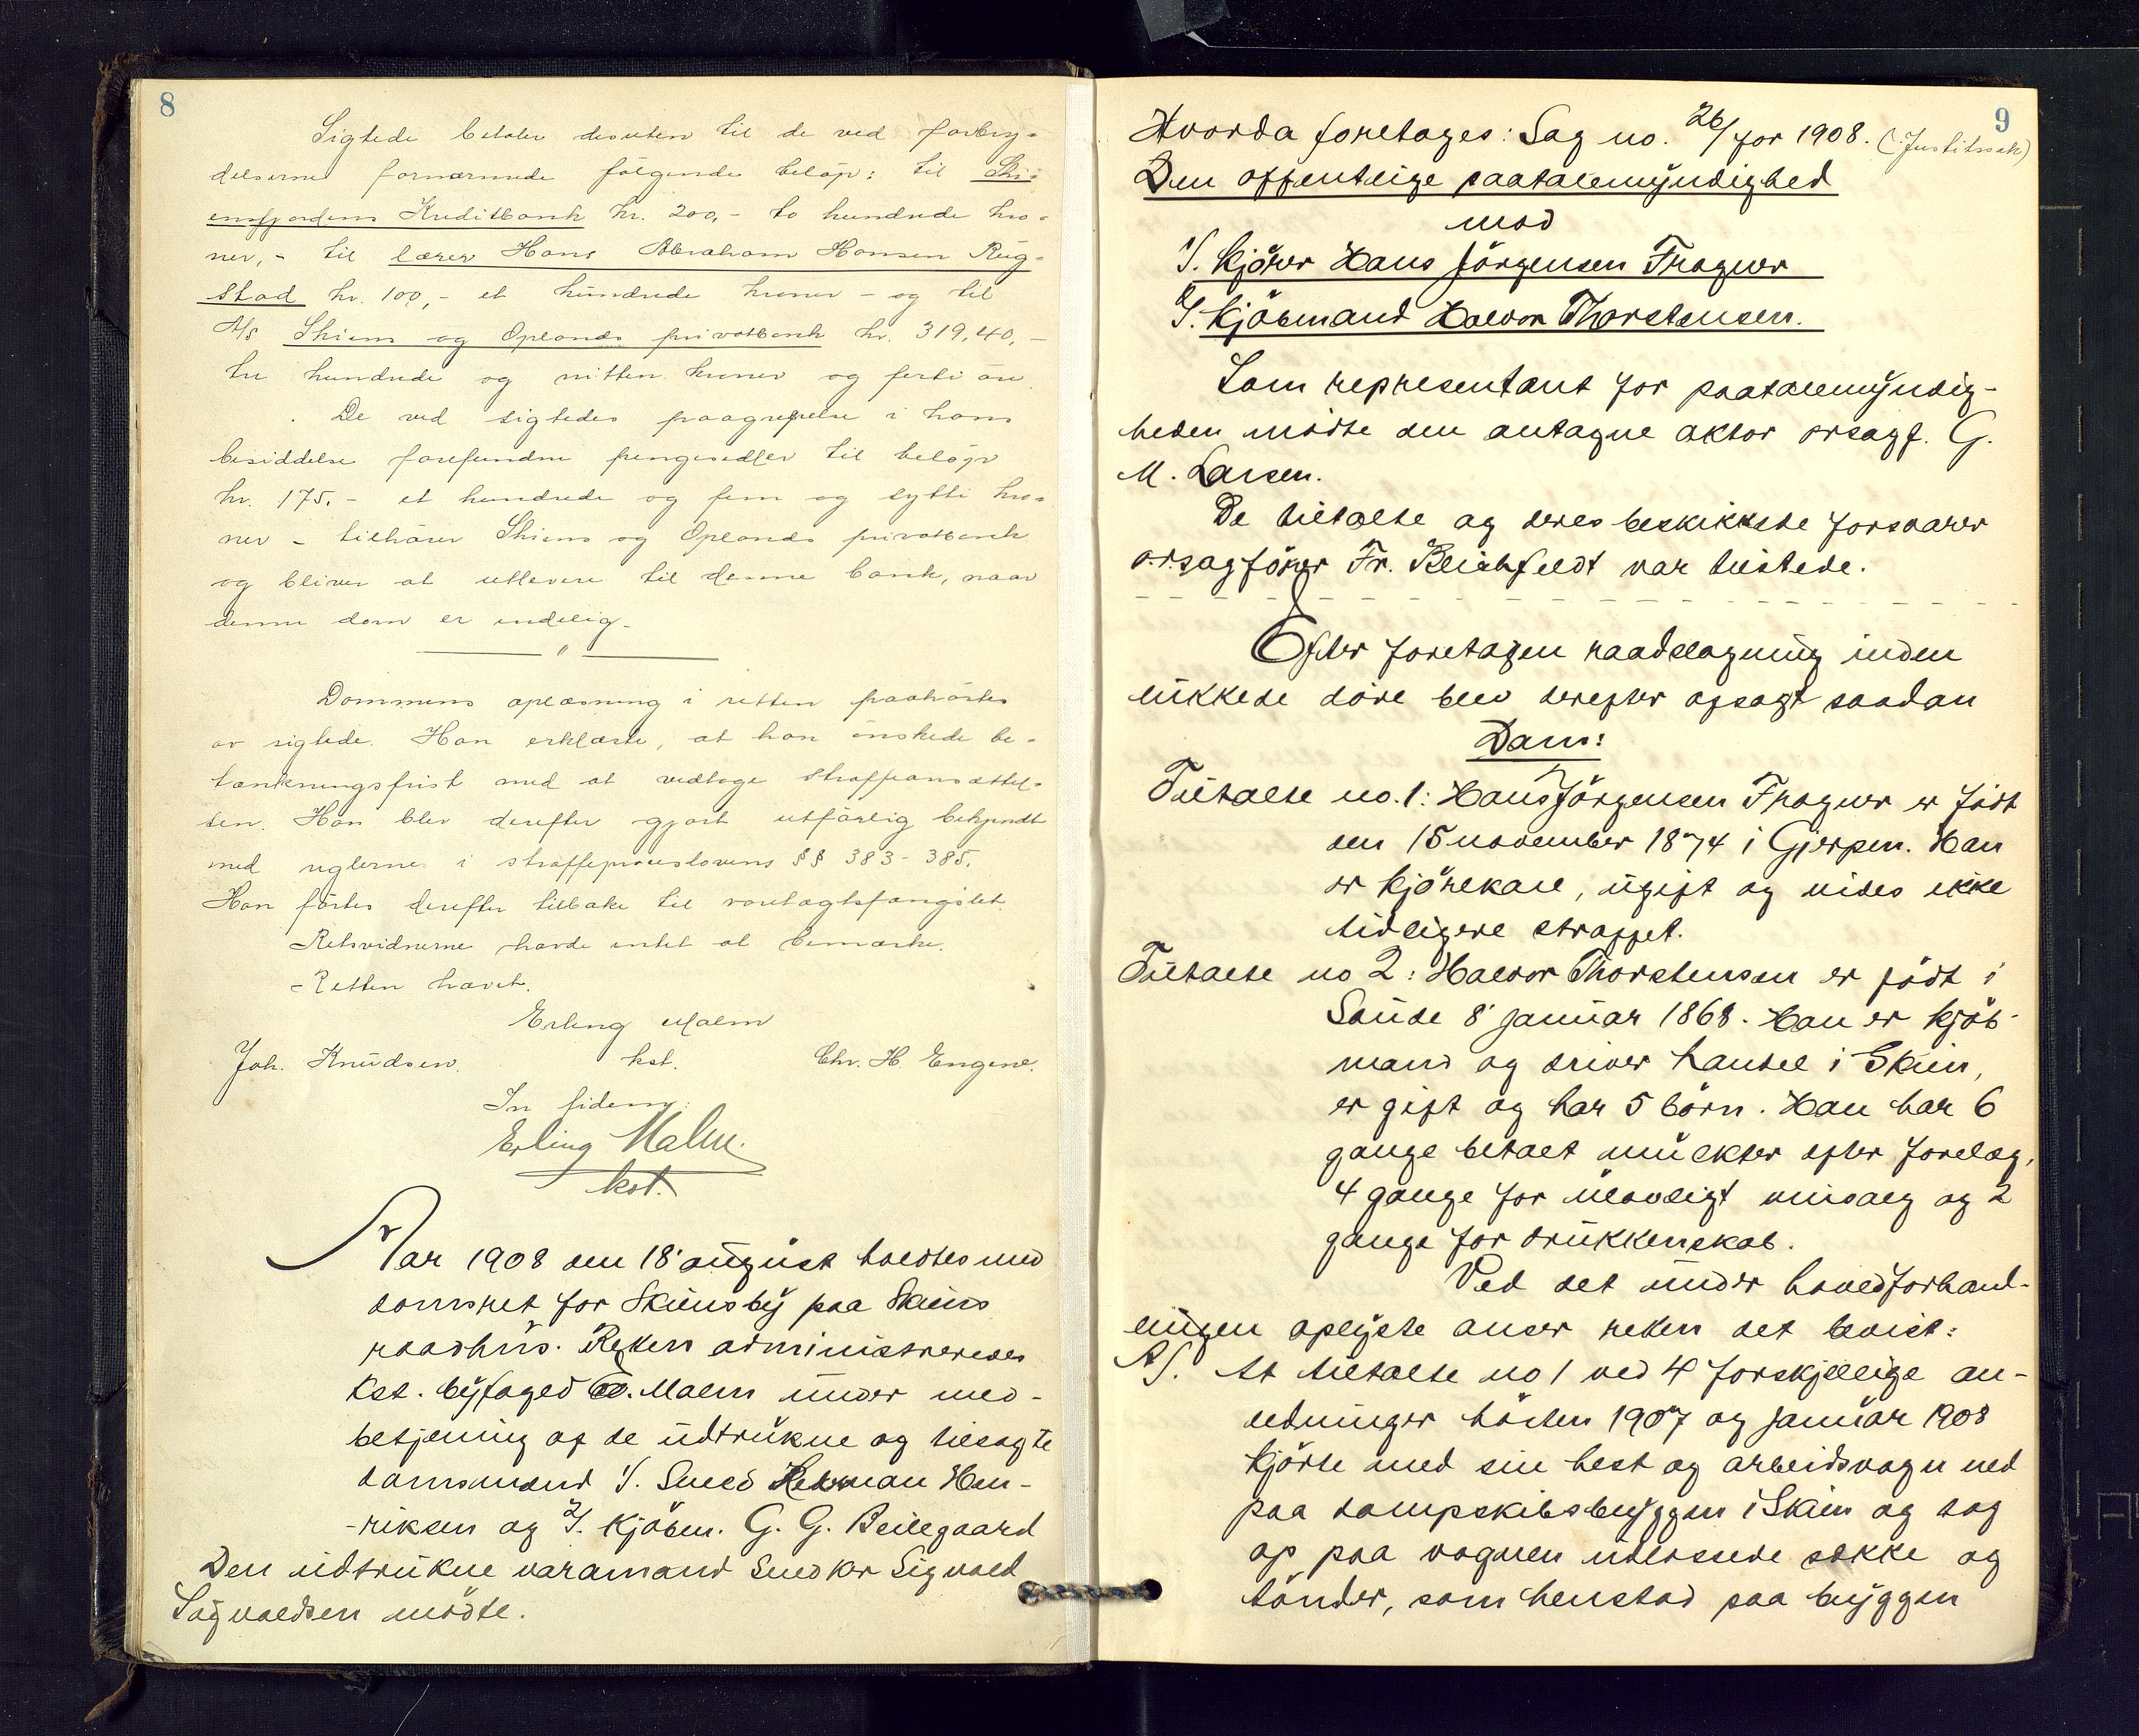 8
Sigtede betaler desuten til de ved forbry-
delserne fornærmede følgende beløp: til Ski-
ensfjordens Kreditbank kr. 200,- to hundrede kro-
ner,- til lærer Hans Abraham Hansen Rug-
stad kr. 100,- et hundrede kroner - og til
A/S Skiens og Oplands privatbank kr. 319,40,-
tre hundrede og nitten kroner og førti øre.
De ved sigtedes paagripelse i hans
besiddelse forefundne pengesedler til beløp
kr. 175.- et hundrede og fem og sytti kro-
ner - tilhører Skiens og Oplands privatbank
og bliver at utlevere til denne bank, naar
denne dom er endelig.
Dommens oplæsning i retten paahørtes
av sigtede. Han erklærte, at han ønskede be-
tænkningsfrist med at vedtage straffeansættel-
sen. Han blev derefter gjort utførlig bekjendt
med reglerne i straffeproceslovens §§ 383-385.
Han førtes derefter tilbake til varetægtsfængslet.
Retsvidnerne havde intet at bemærke.
Retten hævet.
Erling Malm
Joh. Knudsen. kst. Chr. H. Engene.
In fidem:
Erling Malm.
kst.
Aar 1908 den 18 august holdtes med
domsret for Skiens by paa Skiens
raadhus. Retten administreredes
kst. byfoged E. Malm under med-
betjening af de udtrukne og tilsagte
domsmænd 1/. Smed Herman Hen-
-riksen og 2/. Kjøbm. G. G. Beilegaard
Den udtrukne varamand Snedker Sigvald
Sagvaldsen mødte.
9
Hvorda foretages: Sag no. 26/ for 1908. (Justitssak)
Den offentlige paatalemyndighed
mod
1/. Kjører Hans Jörgensen Frogner
2/. Kjöbmand Halvor Thorstensen.
Som representant for paatalemyndig-
heden mödte den antagne aktor orsagf. G.
M. Larsen.
De tiltalte og deres beskikkede forsvarer
o.r.sagförer Fr. Blichfeldt var tilstede.
Efter foretagen raadslagning inden
lukkede döre blev derefter afsagt saadan
Dom:
Tiltalte no. 1: Hans Jörgensen Frogner er födt
den 15 november 1874 i Gjerpen. Han
er kjörekare, ugift og vides ikke
tidligere straffet.
Tiltalte no 2: Halvor Thorstensen er födt i
Saude 8 januar 1868. Han er kjöb-
mand og driver handel i Skien,
er gift og har 5 börn. Han har 6
gange betalt mulkter efter forelæg,
4 gange for ulovligt vinsalg og 2
gange for drukkenskab.
Ved det under hovedforhand-
lingen oplyste anser retten det bevist:
A/. At tiltalte no 1 ved 4 forskjellige an-
ledninger hösten 1907 og januar 1908
kjörte med sin hest og arbeidsvogn ned
paa dampskibsbryggen i Skien og tog
op paa vognen udlossede sække og
tönder, som henstod paa bryggen